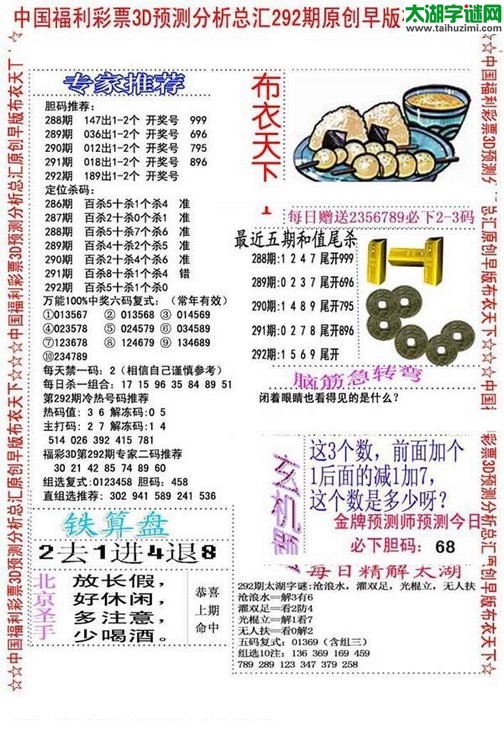 中国福利彩票3D预测分析总汇292期原创早版布
太湖字谜网
www.taihuzimi.com
专家推荐
胆码推荐：
288期 147出1-2个 开奖号 999
289期 036出1-2个 开奖号 696
290期 012出1-2个 开奖号 795
291期 018出1-2个 开奖号 896
292期 189出1-2个 开奖号
定位杀码：
286期 百杀5十杀1个杀4 准
287期 百杀5十杀1个杀6 准
288期 百杀5十杀4个杀6 准
289期 百杀4十杀2个杀5 准
290期 百杀2十杀4个杀6 准
291期 百杀8十杀1个杀4 错
292期 百杀5十杀1个杀0
万能100%中奖六码复式：（常年有效）
①013567 ②013568 ③014569
④023578 ⑤024579 ⑥034589
⑦123678 ⑧124679 ⑨134689
⑩234789
每天禁一码：2（相信自己谨慎参考）
每日杀一组合：17 15 96 35 84 89 51
第292期冷热号码推荐
热码值：3 6 解冻码：0 5
主打码：2 7 解冻码：1 4
514 026 392 415 781
福彩3D第292期专家二码推荐
30 21 42 85 74 89 60
组选复式：0123458 胆码：458
直组选推荐：302 941 589 241 536
铁算盘
2去1进4退8
北京圣手
放长假，
好休闲，
多注意，
少喝酒。
恭喜
上期
命中
布衣天下
每日赠送2356789必下2-3码
最近五期和值尾杀
288期:1 2 4 7 尾开999
289期:0 2 3 7 尾开696
290期:1 4 8 9 尾开795
291期:0 2 7 8 尾开896
292期:1 5 6 9 尾开
脑筋急转弯
闭着眼睛也看得见的是什么？
玄机
这3个数，前面加个
1后面的减1加7，
这个数是多少呀？
金牌预测师预测今日
必下胆码： 68
每日精解太湖
292期太湖字谜:沧浪水，濯双足，光棍立，无人扶
沧浪水——解3有6
濯双足——看2防4
光棍立——解1看7
无人扶——看0解2
五码复式：01369（含组三）
组选10注： 136 369 169 459
789 289 123 347 379 258
☆☆中国福利彩票3D预测分析总汇原创早版布衣天下☆☆中国福利彩票3D预测分析总汇原创早版布衣天丁